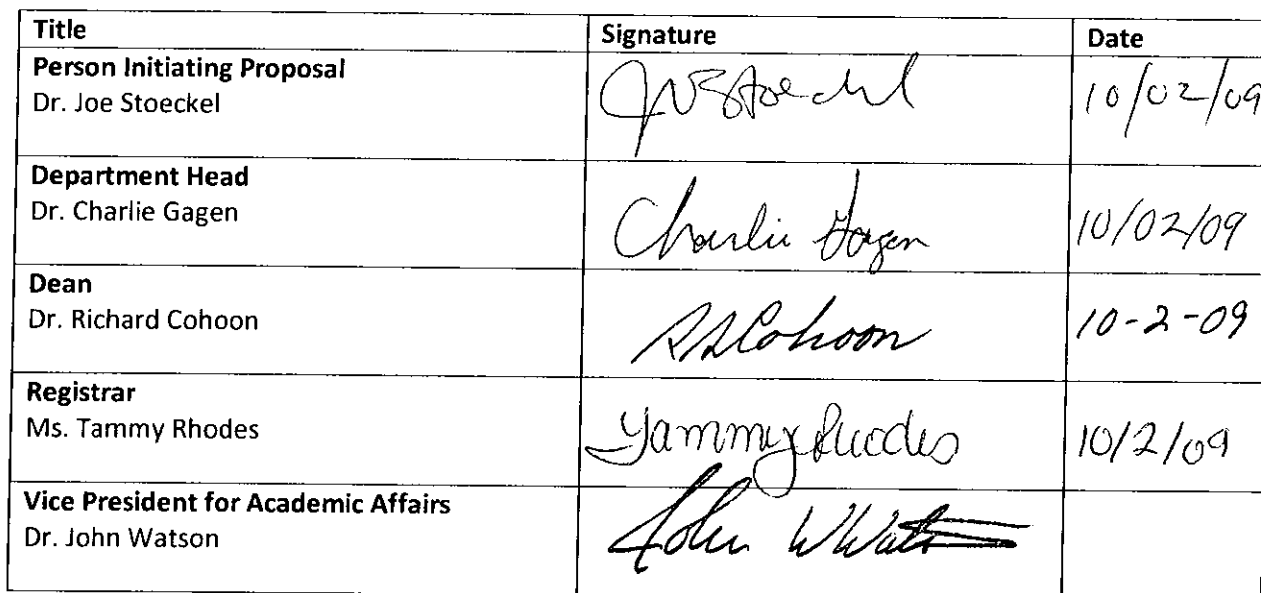 Title Signature Date
Person Initiating Proposal
Dr. Joe Stoeckel JNStoeckel 10/02/09
Department Head
Dr. Charlie Gagen Charlie Gagen 10/02/09
Dean
Dr. Richard Cohoon RRCohoon 10-2-09
Registrar
Ms. Tammy Rhodes Tammy Rhodes 10/2/09
Vice President for Academic Affairs
Dr. John Watson John W Watson